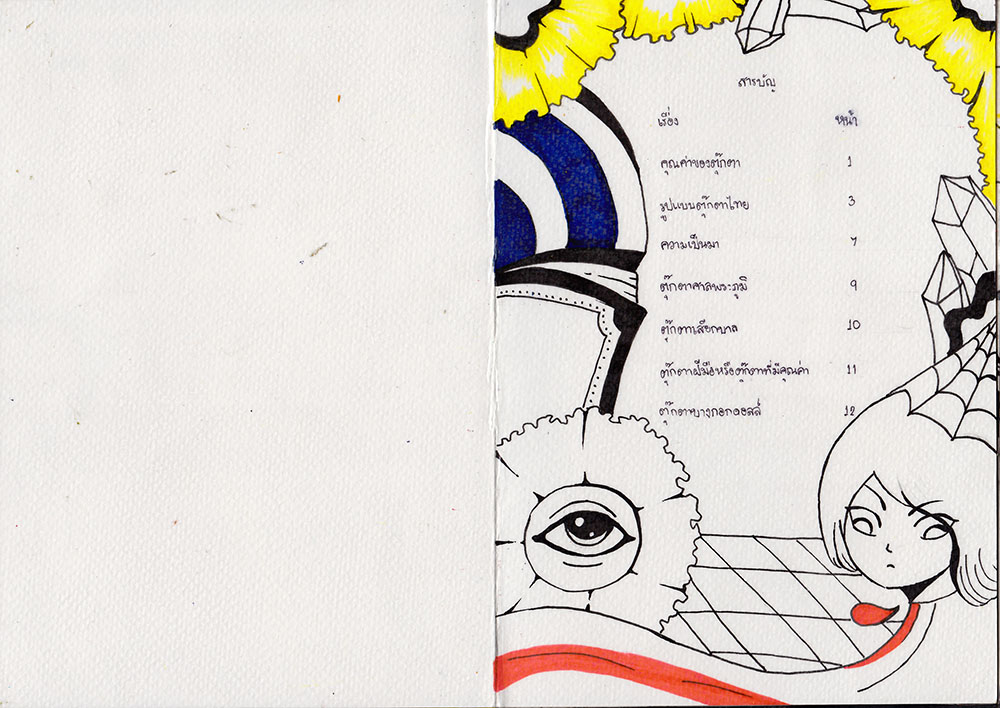 สารบัญ
เรื่อง หน้า
คุณค่าของตุ๊กตา 1
รูปแบบตุ๊กตาไทย 3
ความเป็นมา 7
ตุ๊กตาศาลพระภูมิ 9
ตุ๊กตาเสียกบาล 10
ตุ๊กตาฝีมือหรือตุ๊กตาที่มีคุณค่า 11
ตุ๊กตาบางกอกดอลล์ 12